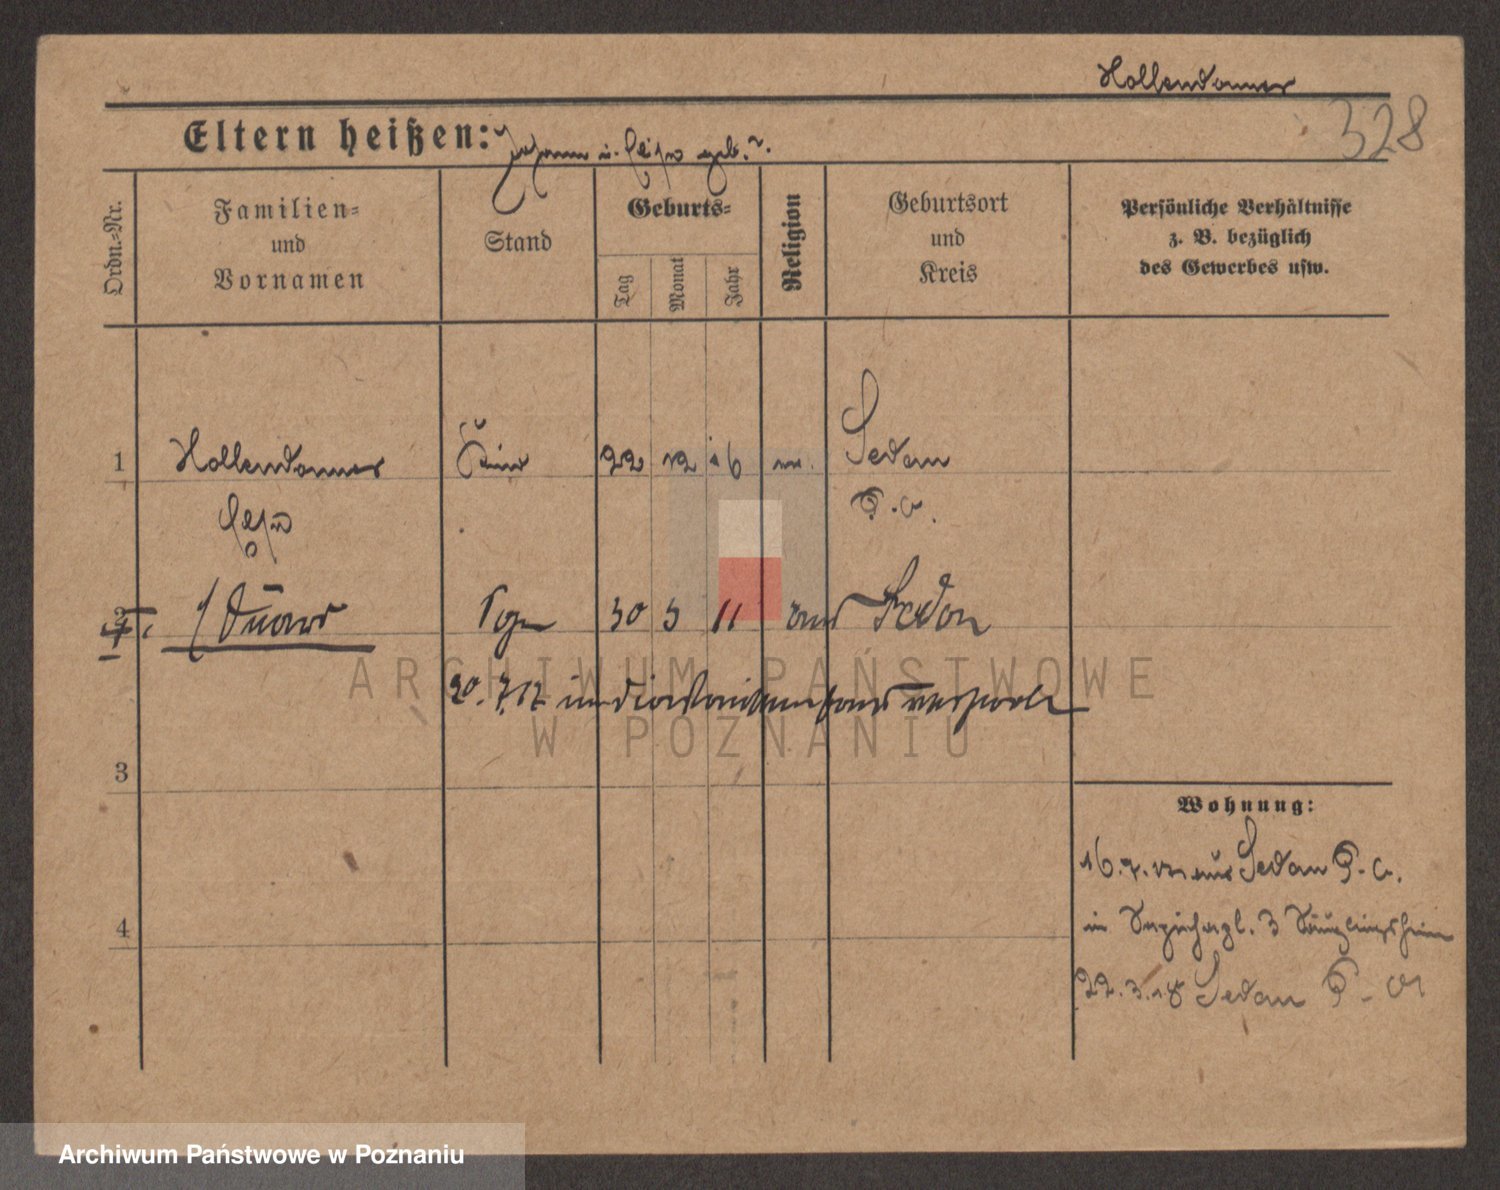 Hollendonner
328
Eltern heißen: Johann u. geb. ?.
Ordn.-Nr.
Familien-
und
Vornamen
Stand
Geburts-
Tag
Monat
Jahr
Religion
Geburtsort
und
Kreis
Persönliche Verhältnisse
z. B. bezüglich
des Gewerbes usw.
1 Hollendonner Kind 22 12 16 Sedan
P. O.
2 Eduard Sohn 30 5 11 Sedan
30. 7. 17 im
ARCHIWUM PAŃSTWOWE
W POZNANIU
3
4
Wohnung:
16. 7. 17 aus Sedan P. O.
in 3 Säuglingsheim
22. 3. 18 Sedan P. O.
Archiwum Państwowe w Poznaniu